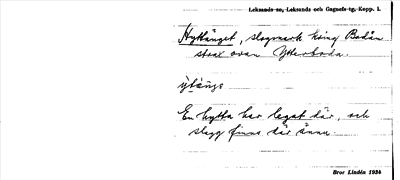 Leksands sn, Leksands och Gagnefs tg, Kopp. l.
Hyttänget, slogmark kring Badån
strax ovan Ytterboda.
ỳtäŋg̣ǝ
En hytta har legat där, och
slagg finns där ännu.
Bror Lindén 1934